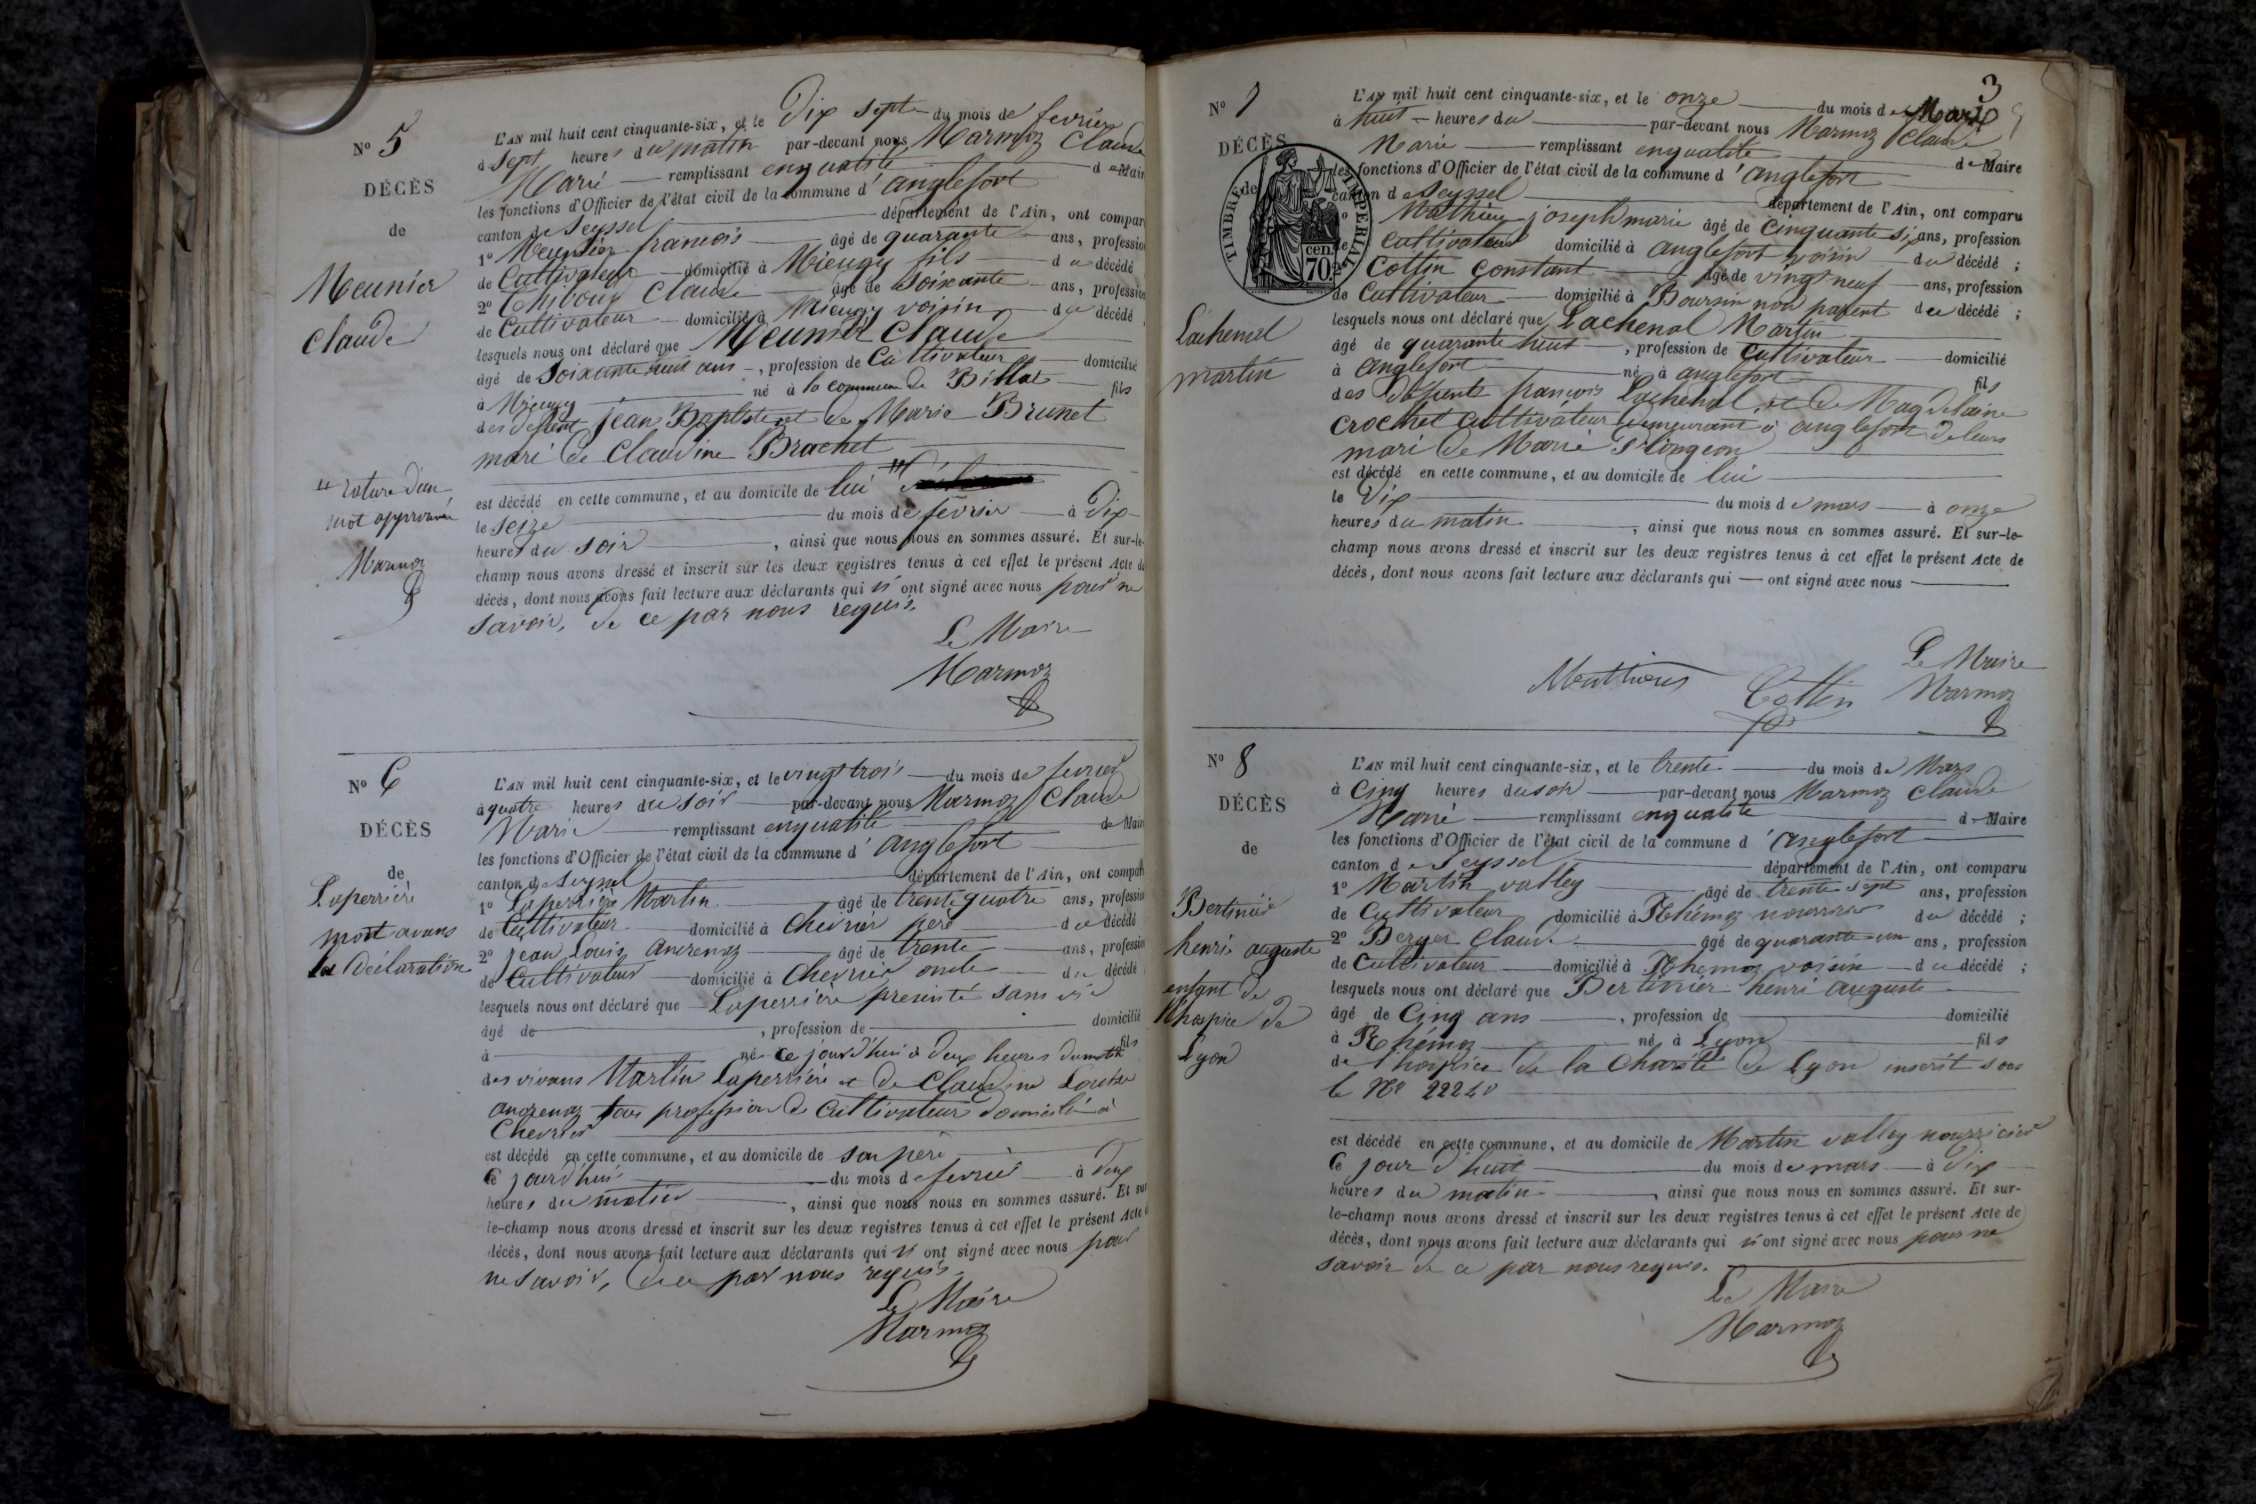 N° 5
DÉCÈS
de
Meunier
Claude
L'AN mil huit cent cinquante-six, et le Dix sept du mois de fevrier
à sept heures du matin par-devant nous Marmoz Claude
Marie remplissant enqualité de Mair
les fonctions d'Officier de l'état civil de la commune d'anglefort
canton de Seyssel département de l'Ain, ont compar
1° Meunier francois âgé de quarante ans, professio
de Cultivateur domicilié à Mieugy fils du décédé
2° Chiboud Claude âgé de soixante ans, professio
de Cultivateur domicilié à Mieugy voisin du décédé
lesquels nous ont déclaré que Meunier Claude
âgé de soixante ans, profession de Cultivateur domicilié
à Mieugy né à la commune de Billat fils
des defunt jean Baptiste et de Marie Brunet
mari de Claudine Brachet
" rature d'un
mot approuvé
Marmoz
est décédé en cette commune, et au domicile de lui "
le seize du mois de fevrier à Dix
heures du soir, ainsi que nous nous en sommes assuré. Et sur-le-
champ nous avons dressé et inscrit sur les deux registres tenus à cet effet le présent Acte de
décès, dont nous avons fait lecture aux déclarants qui n' ont signé avec nous pour ne
savoir, de ce par nous requis.
Le Maire
Marmoz
N° 6
DÉCÈS
de
Laperrière
mort avant
la déclaration
L'AN mil huit cent cinquante-six, et le vingt trois du mois de fevrier
à quatre heures du soir par-devant nous Marmoz Claude
Marie remplissant enqualité de Mair
les fonctions d'Officier de l'état civil de la commune d'anglefort
canton de Seyssel département de l'Ain, ont compar
1° Laperrière Martin âgé de trente quatre ans, professio
de Cultivateur domicilié à Chevrier père du décédé
2° jean Louis andrenaz âgé de trente ans, professio
de Cultivateur domicilié à Chevrier oncle du décédé
lesquels nous ont déclaré que Laperrière presenté sans vie
âgé de , profession de domicilié
à né ce jourd'hui à deux heures du matin fils
des vivans Martin Laperrière et de Claudine
andrenaz tous profession de Cultivateur domicilié à
Chevrier
est décédé en cette commune, et au domicile de son père
Ce jourd'hui du mois de fevrier à deux
heures du matin, ainsi que nous nous en sommes assuré. Et sur
le-champ nous avons dressé et inscrit sur les deux registres tenus à cet effet le présent Acte
décès, dont nous avons fait lecture aux déclarants qui n' ont signé avec nous pour
ne savoir, de ce par nous requis.
Le Maire
Marmoz
3
N° 7
DÉCÈS
de
TIMBRE IMPERIAL
70 cen.
Lachenal
martin
L'AN mil huit cent cinquante-six, et le onze du mois de Mars
à huit heures du par-devant nous Marmoz Claude
Marie remplissant enqualité de Maire
les fonctions d'Officier de l'état civil de la commune d'anglefort
canton de Seyssel département de l'Ain, ont comparu
1° Mathieu joseph marie âgé de Cinquante six ans, profession
de Cultivateur domicilié à anglefort voisin du décédé ;
2° Cottin Constant âgé de vingt neuf ans, profession
de Cultivateur domicilié à Boursin non parent du décédé ;
lesquels nous ont déclaré que Lachenal Martin
âgé de quarante huit, profession de Cultivateur domicilié
à anglefort né à anglefort fils
des défunts francois Lachenal, et de Magdelaine
Crochet Cultivateur demeurant à anglefort de leurs
mari de Marie
est décédé en cette commune, et au domicile de lui
le Dix du mois de mars à onze
heures du matin, ainsi que nous nous en sommes assuré. Et sur-le-
champ nous avons dressé et inscrit sur les deux registres tenus à cet effet le présent Acte de
décès, dont nous avons fait lecture aux déclarants qui — ont signé avec nous
Le Maire
Cottin Marmoz
N° 8
DÉCÈS
de
Bertinier
henri auguste
enfant de
l'hospice de
Lyon
L'AN mil huit cent cinquante-six, et le trente du mois de Mars
à Cinq heures du soir par-devant nous Marmoz Claude
Marie remplissant enqualité de Maire
les fonctions d'Officier de l'état civil de la commune d'anglefort
canton de Seyssel département de l'Ain, ont comparu
1° Martin valley âgé de trente sept ans, profession
de Cultivateur domicilié à Rhémoz nourricier du décédé ;
2° Berger Claude âgé de quarante un ans, profession
de Cultivateur domicilié à Rhemoz voisin du décédé ;
lesquels nous ont déclaré que Bertinier henri auguste
âgé de Cinq ans, profession de domicilié
à Rhémoz né à Lyon fils
de l'hospice de la charité de Lyon inscrit sous
le N°
est décédé en cette commune, et au domicile de Martin valley nourricier
Ce jour d'huit du mois de mars à dix
heures du matin, ainsi que nous nous en sommes assuré. Et sur-
le-champ nous avons dressé et inscrit sur les deux registres tenus à cet effet le présent Acte de
décès, dont nous avons fait lecture aux déclarants qui n' ont signé avec nous pour ne
savoir de ce par nous requis.
Le Maire
Marmoz